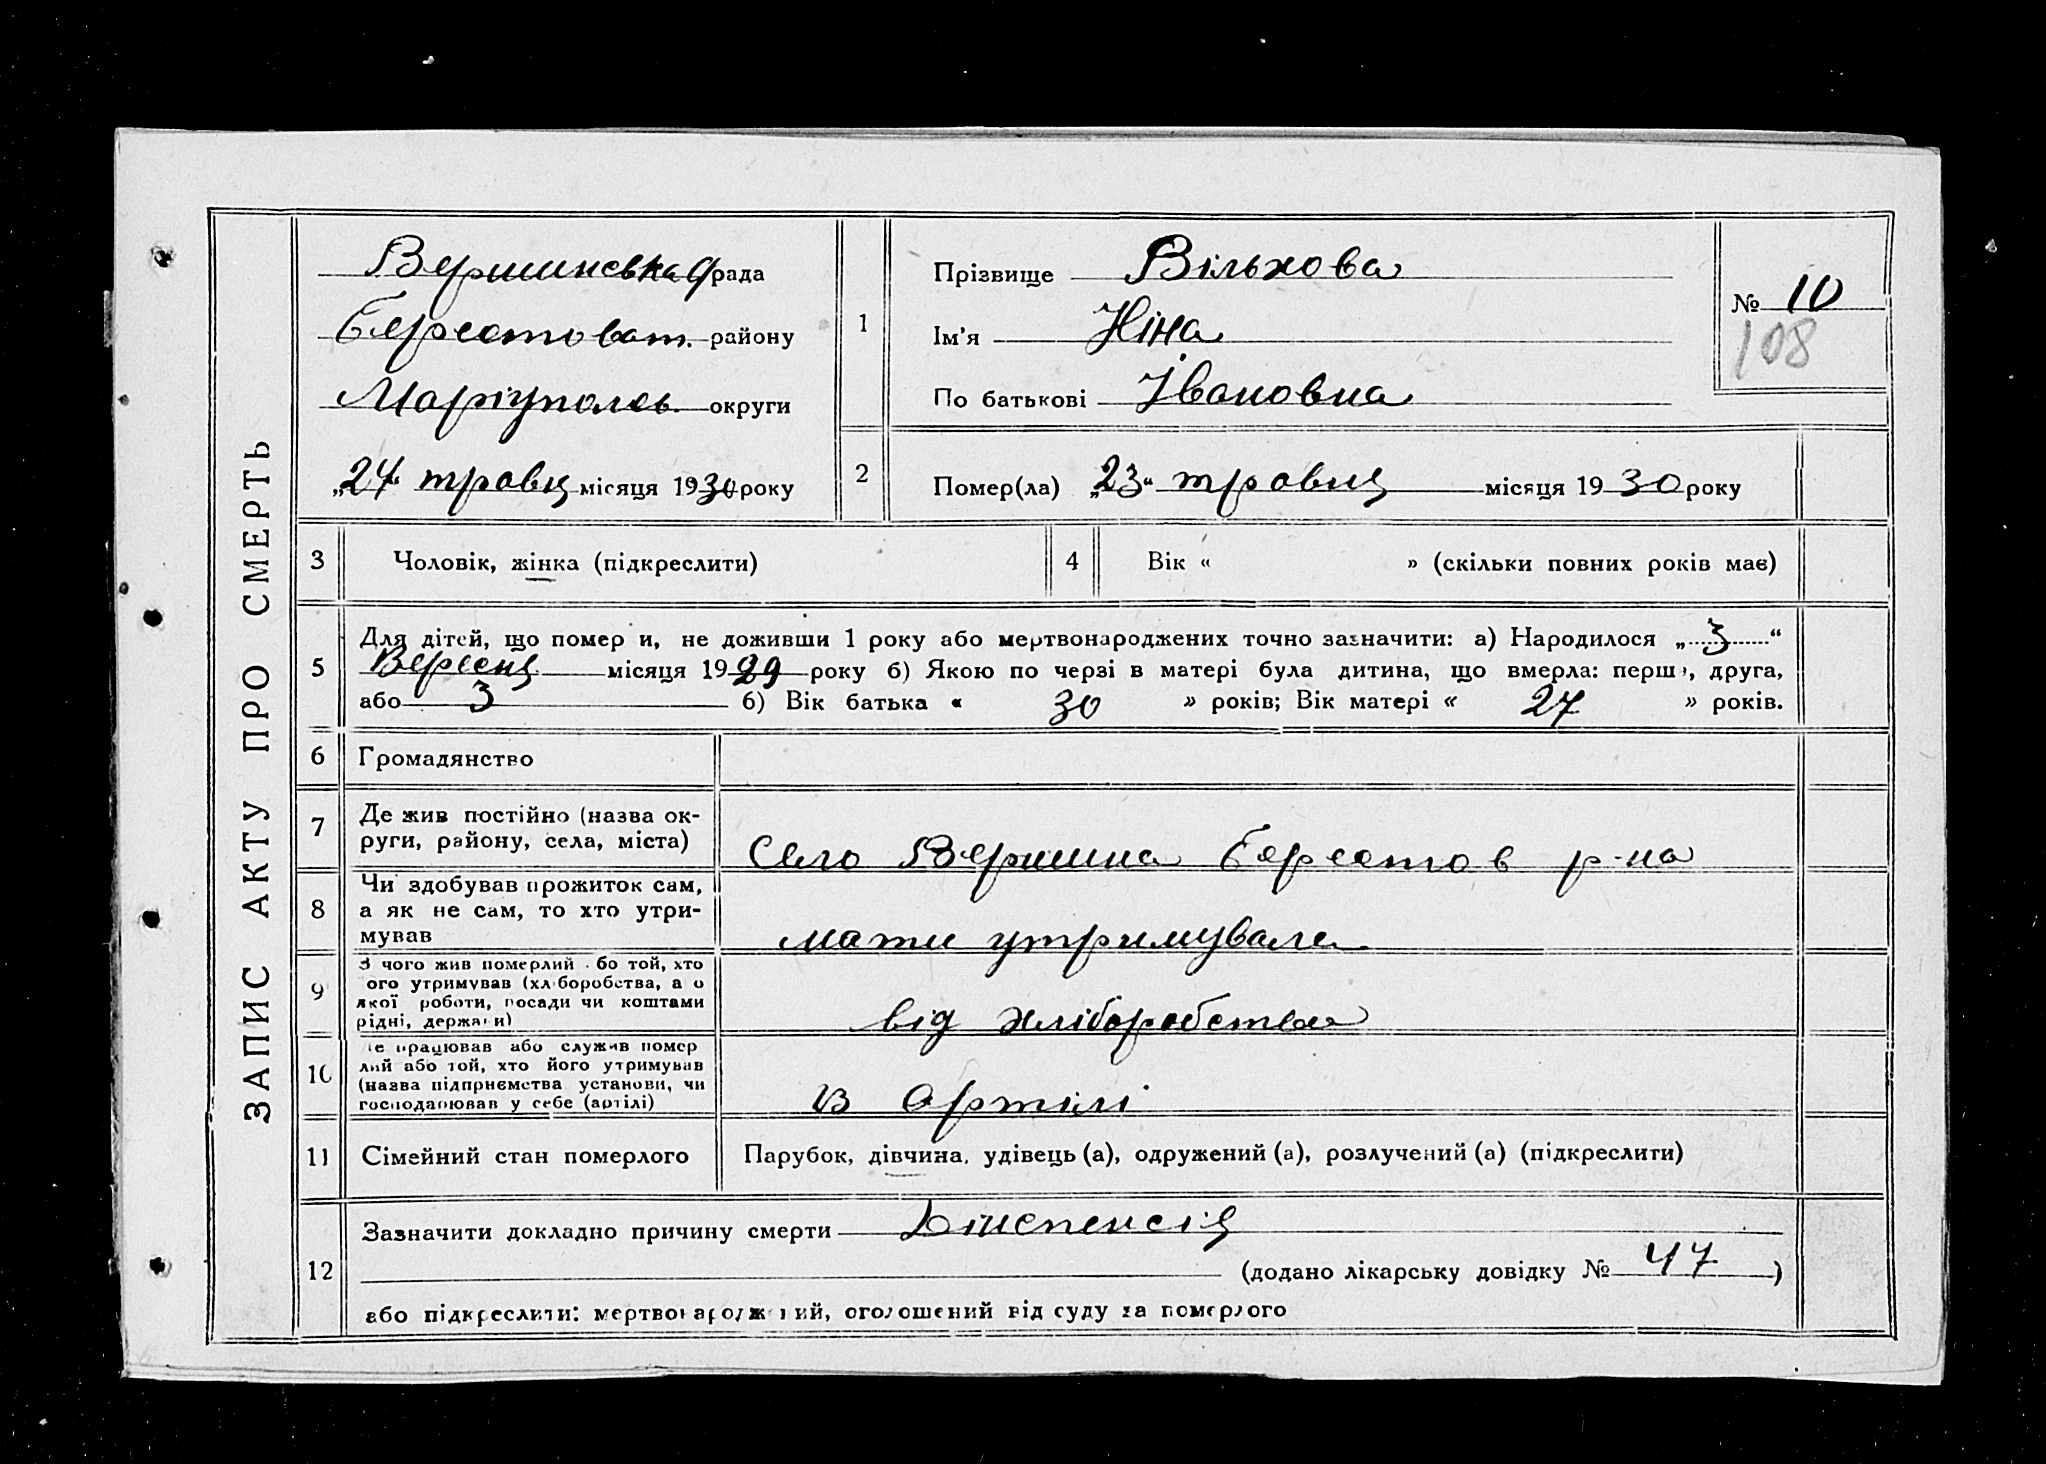 ЗАПИС АКТУ ПРО СМЕРТЬ
Вершинська рада
Берестоват. району
Маріуполь. округи
„24“ травц місяця 1930 року
1
Прізвище Вільхова
Ім'я Ніна
По батькові Івановна
№ 10
108
2
Помер(ла) „23“ травц місяця 1930 року
3 Чоловік, жінка (підкреслити)
4 Вік « » (скільки повних років має)
5
Для дітей, що померли, не доживши 1 року або мертвонароджених точно зазначити: а) Народилося „3“
Вересц місяця 1929 року б) Якою по черзі в матері була дитина, що вмерла: перша, друга,
або 3 б) Вік батька « 30 » років; Вік матері « 27 » років.
6 Громадянство
7
Де жив постійно (назва ок-
руги, району, села, міста)
Село Вершина Берестов р-на
8
Чи здобував прожиток сам,
а як не сам, то хто утри-
мував
мати утримувала
9
З чого жив померлий або той, хто
його утримував (хліборобства, а о
якої роботи, посади чи коштами
рідні, держави)
від хліборобства
10
Де працював або служив помер
лий або той, хто його утримував
(назва підприємства установи, чи
господарював у себе (артілі)
В Артілі
11 Сімейний стан померлого
Парубок, дівчина, удівець (а), одружений (а), розлучений (а) (підкреслити)
12
Зазначити докладно причину смерти Діспепсія
(додано лікарську довідку № 47)
або підкреслити: мертвонароджений, оголошений від суду за померлого